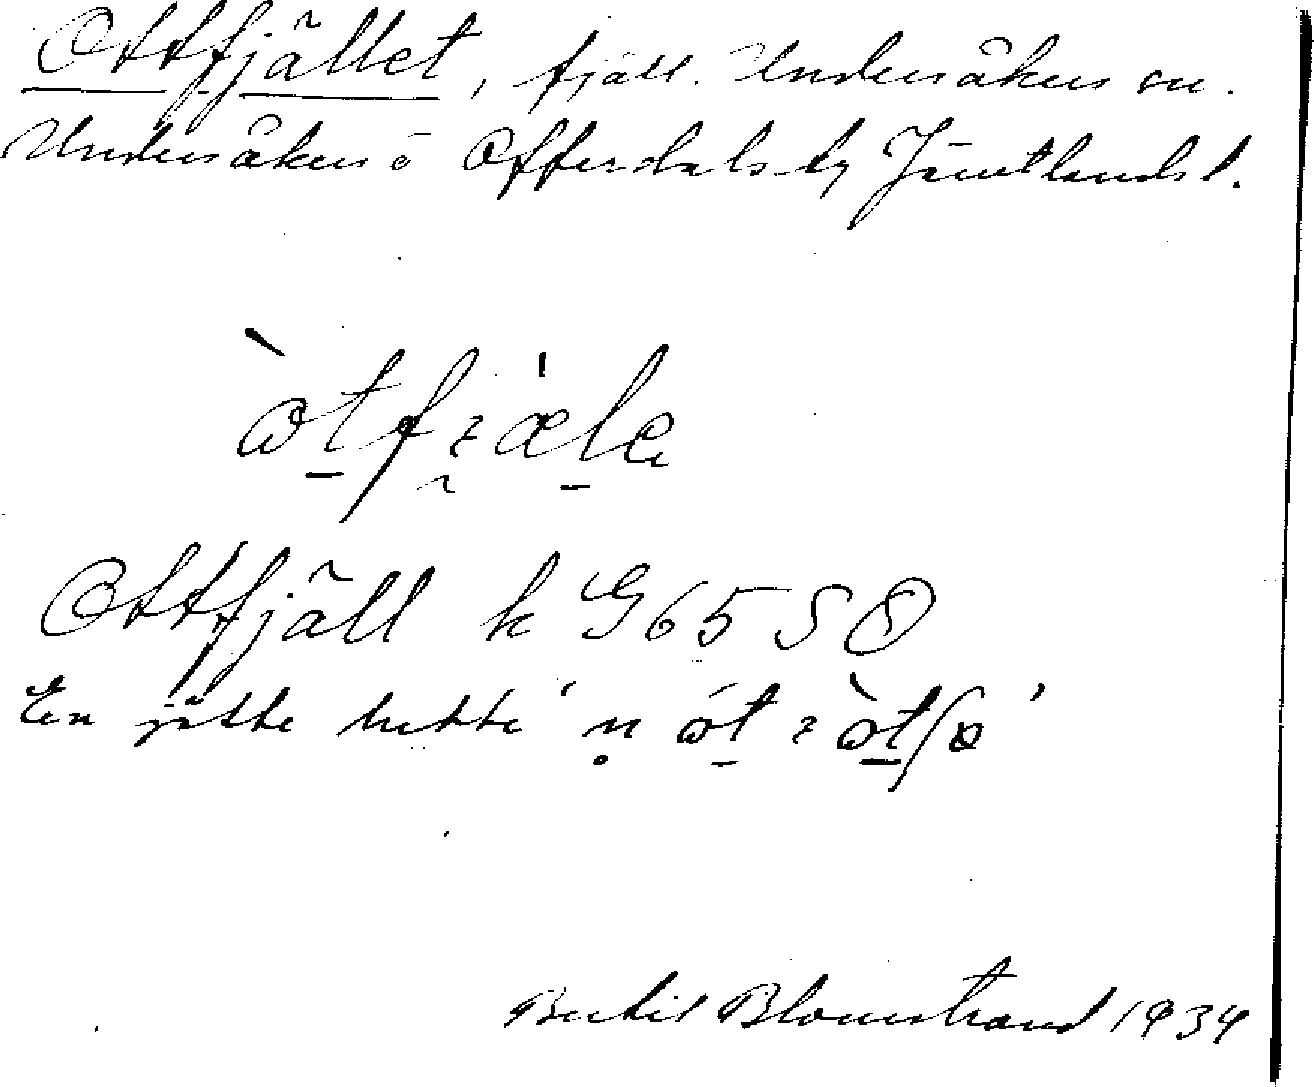 Ottfjället, fjäll. Undersåkers sn.
Undersåkers o Offerdals tg Jämtlands l.
òtfɿæle
Ottfjäll k G65 SO
En jätte hette 'n ót ɿ òtſø'
Bertil Blomstrand 1934